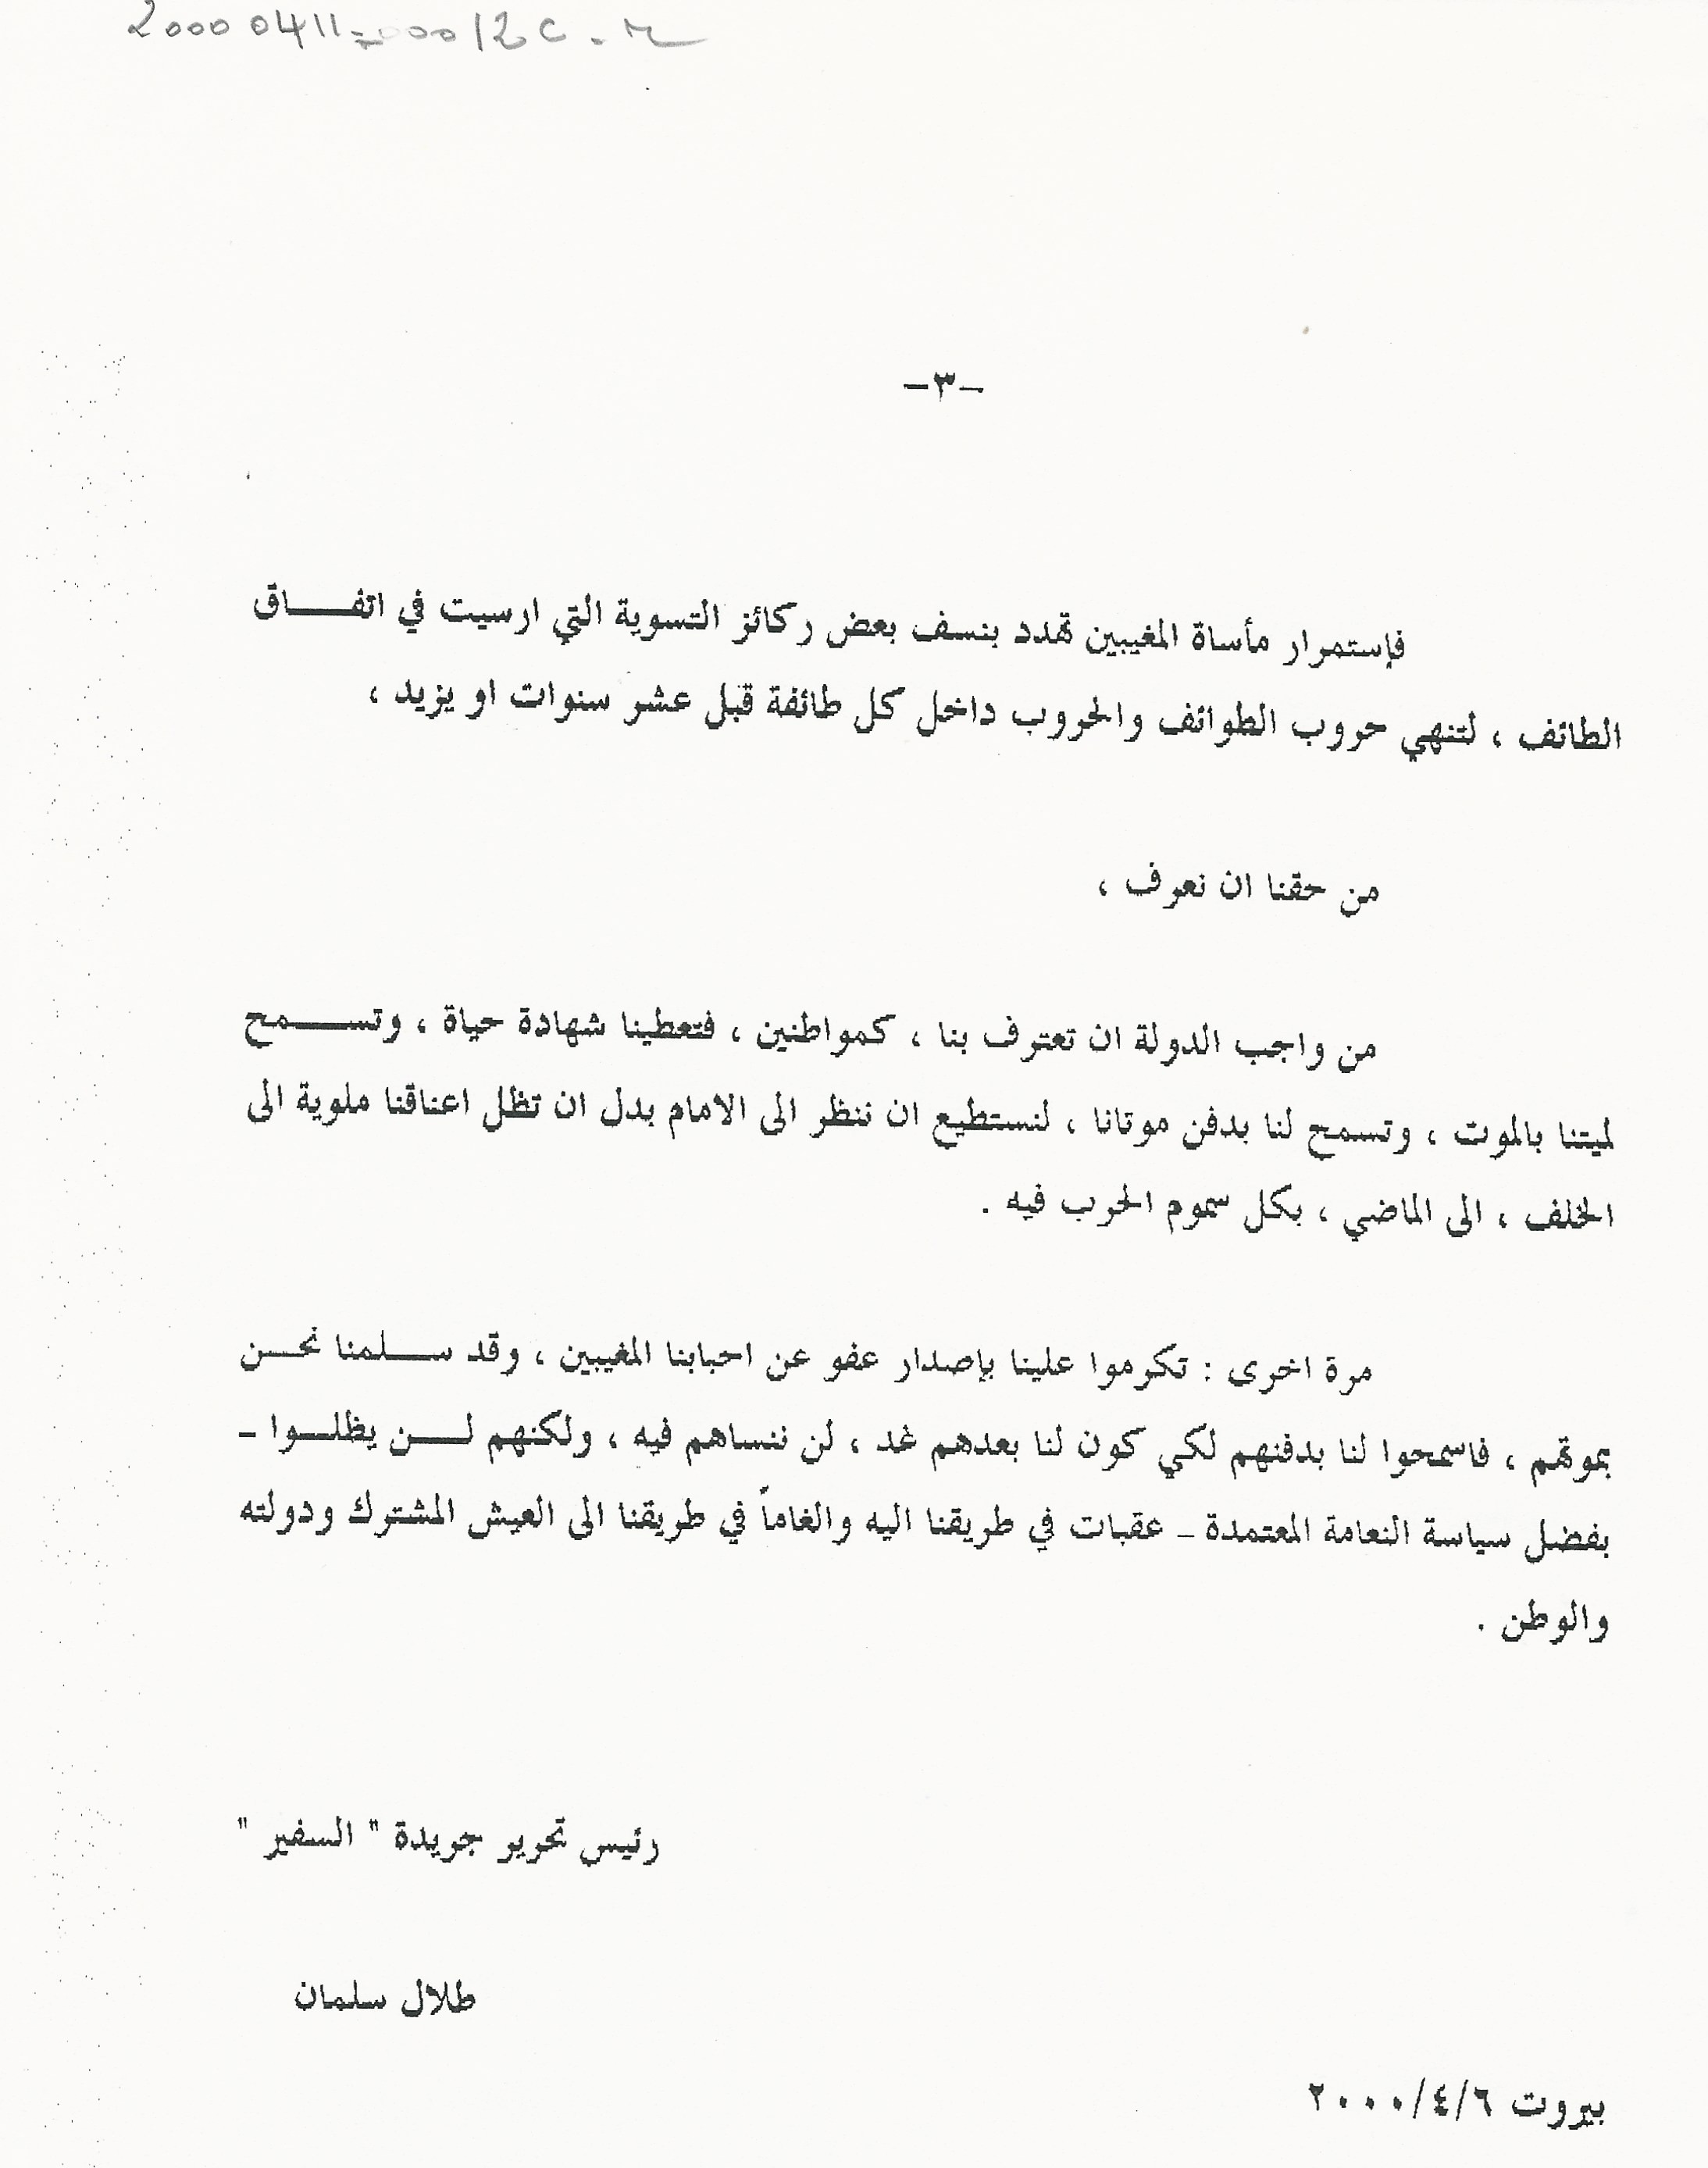 20000411-00012C.M
-٣-
فإستمرار مأساة المغيبين تهدد بنسف بعض ركائز التسوية التي ارسيت في اتفـــــاق
الطائف ، لتنهي حروب الطوائف والحروب داخل كل طائفة قبل عشر سنوات او يزيد ،
من حقنا ان نعرف ،
من واجب الدولة ان تعترف بنا ، كمواطنين ، فتعطينا شهادة حياة ، وتســـــمح
لميتنا بالموت ، وتسمح لنا بدفن موتانا ، لنستطيع ان ننظر الى الامام بدل ان تظل اعناقنا ملوية الى
الخلف ، الى الماضي ، بكل سموم الحرب فيه .
مرة اخرى : تكرموا علينا بإصدار عفو عن احبابنا المغيبين ، وقد ســـلمنا نحـــن
بموتهم ، فاسمحوا لنا بدفنهم لكي كون لنا بعدهم غد ، لن ننساهم فيه ، ولكنهم لـــن يظلـــوا -
بفضل سياسة النعامة المعتمدة - عقبات في طريقنا اليه والغاماً في طريقنا الى العيش المشترك ودولته
والوطن .
رئيس تحرير جريدة " السفير "
طلال سلمان
بيروت ٢٠٠٠/٤/٦